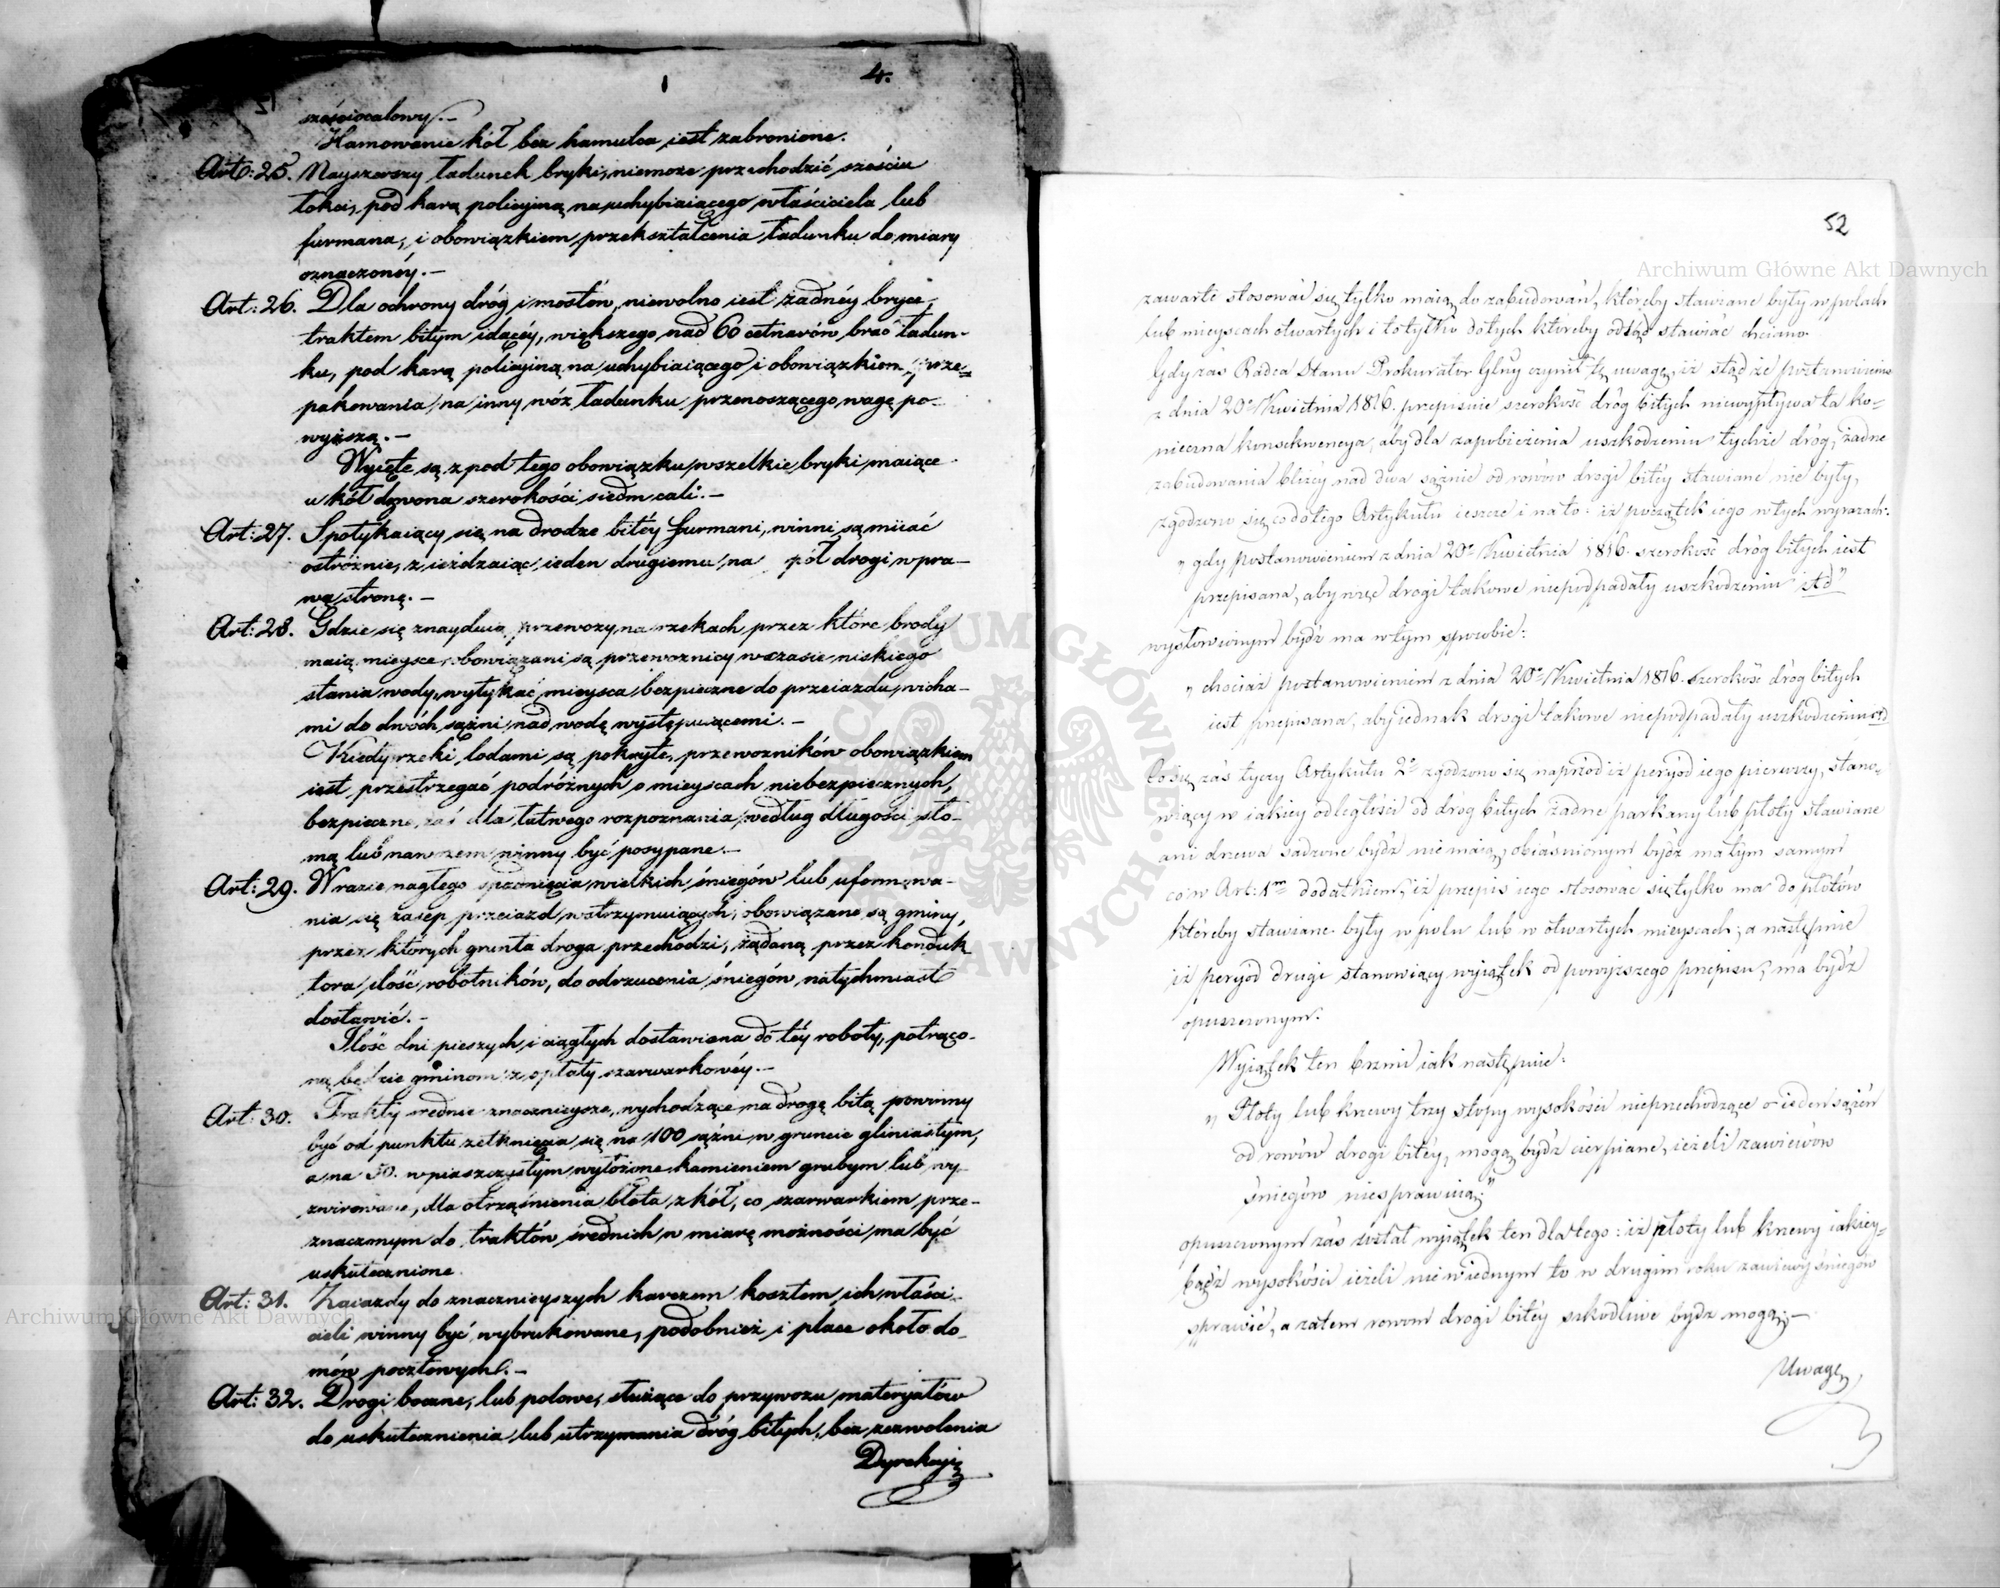 4.
sześciocalowy. –
Hamowanie kół bez hamulca iest zabronione.
Art: 25. Nayszerszy ładunek bryki, niemoże przechodzić sześciu
łokci, pod karą policyiną na uchybiaiącego właściciela lub
furmana, i obowiązkiem przekształcenia ładunku do miary
oznaczonéy. –
Art: 26. Dla ochrony dróg i mostów, niewolno iest żadnéy bryce,
traktem bitym idącéy, większego nad 60 cetnarów brać ładun-
ku, pod karą policyiną na uchybiaiącego i obowiązkiem prze-
pakowania na inny wóz ładunku przenoszącego wagę po-
wyższą. –
Wyięte są z pod tego obowiązku wszelkie bryki maiące
u kół dzwona szerokości siedm cali. –
Art: 27. Spotykaiący się na drodze bitéy furmani, winni są miiać
ostróżnie, zieżdzaiąc ieden drugiemu na pół drogi w pra-
wą stronę. –
Art: 28. Gdzie się znayduią przewozy na rzekach przez które brody
maią mieysce, obowiązani są przewoznicy w czasie niskiego
stania wody, wytykać mieysca bezpieczne do przeiazdu wicha-
mi do dwóch sążni nad wodę występuiącemi. –
Kiedy rzeki lodami są pokryte, przewozników obowiązkiem
iest przestrzegać podróżnych o mieyscach niebezpiecznych,
bezpieczne zaś dla łatwego rozpoznania według długości sło-
mą lub nawozem winny być posypane. –
Art: 29. W razie nagłego spadnięcia wielkich śniegów lub uformowa-
nia się zasep przeiazd wstrzymuiących, obowiązane są gminy,
przez których grunta droga przechodzi, żądaną przez konduk
tora ilość robotników, do odrzucenia śniegów natychmiast
dostawić. –
Ilość dni pieszych i ciągłych dostawiona do téy roboty, potrąco-
ną będzie gminom z opłaty szarwarkowéy. –
Art: 30. Trakty średnie znacznieysze, wychodzące na drogę bitą powinny
być od punktu zetknięcia się na 100 sążni w gruncie gliniastym,
a na 50. w piaszczystym wyłożone kamieniem grubym lub wy-
żwirowane, dla otrząśnienia błota z kół, co szarwarkiem prze-
znaczonym do traktów średnich w miarę możności ma być
uskutecznione.
Art: 31. Zaiazdy do znacznieyszych karczem kosztem ich właści-
cieli winny być wybrukowane, podobnież i place około do-
mów pocztowych. –
Art: 32. Drogi boczne, lub polowe, służące do przywozu materyałów
do uskutecznienia lub utrzymania dróg bitych, bez zezwolenia
Dyrekcyi
52
zawarte stosować się tylko maią do zabudowań, któreby stawiane były w polach
lub mieyscach otwartych i to tylko do tych któreby odtąd stawiać chciano.
Gdy zaś Radca Stanu Prokurator Głny czynił tę uwagę, iż stąd że postanowienie
z dnia 20o Kwietnia 1816. przepisuie szerokość dróg bitych niewypływa ta ko-
nieczna konsekwencya, aby dla zapobieżenia uszkodzeniu tychże dróg, żadne
zabudowania bliżey nad dwa sążnie od rowów drogi bitéy stawiane nie były,
zgodzono się co do tego Artykułu ieszcze i na to: iż początek iego w tych wyrazach:
„ gdy postanowieniem z dnia 20o Kwietnia 1816. szerokość dróg bitych iest
przepisana, aby więc drogi takowe niepodpadały uszkodzeniu itd"
wysłowionym bydź ma w tym sposobie:
„ chociaż postanowieniem z dnia 20o Kwietnia 1816. szerokość dróg bitych
iest przepisana, aby iednak drogi takowe niepodpadały uszkodzeniu itd
Co się zaś tyczy Artykułu 2o zgodzono się naprzód iż peryod iego pierwszy, stano-
wiący w iakiey odległości od dróg bitych żadne parkany lub płoty stawiane
ani drzewa sadzone bydź nie maią, obiaśnionym bydź ma tym samym
co w Art: 1m dodatkiem, iż przepis iego stosować się tylko ma do płotów
któreby stawiane były w polu lub w otwartych mieyscach; a następnie
iż peryod drugi stanowiący wyiątek od powyższego przepisu, ma bydź
opuszczonym.
Wyiątek ten brzmi iak następuie:
„ Płoty lub krzewy trzy stopy wysokości nieprzechodzące o ieden sążeń
od rowów drogi bitéy, mogą bydź cierpiane, ieżeli zawiewów
śniegów niesprawuią;"
opuszczonym zaś został wyiątek ten dlatego: iż płoty lub krzewy iakiey-
bądź wysokości ieżeli nie w iednym to w drugim roku zawiewy śniegów
sprawić, a zatem rowom drogi bitéy szkodliwe bydź mogą; –
Uwagę
Archiwum Główne Akt Dawnych
Archiwum Główne Akt Dawnych
ARCHIWUM GŁÓWNE AKT DAWNYCH